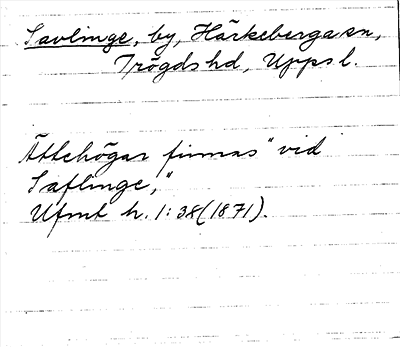 Savlinge, by, Härkeberga sn,
Trögds hd, Upps l.
Ättehögar finnas "vid
Saflinge,"
Ufmt h. 1:38 (1871).